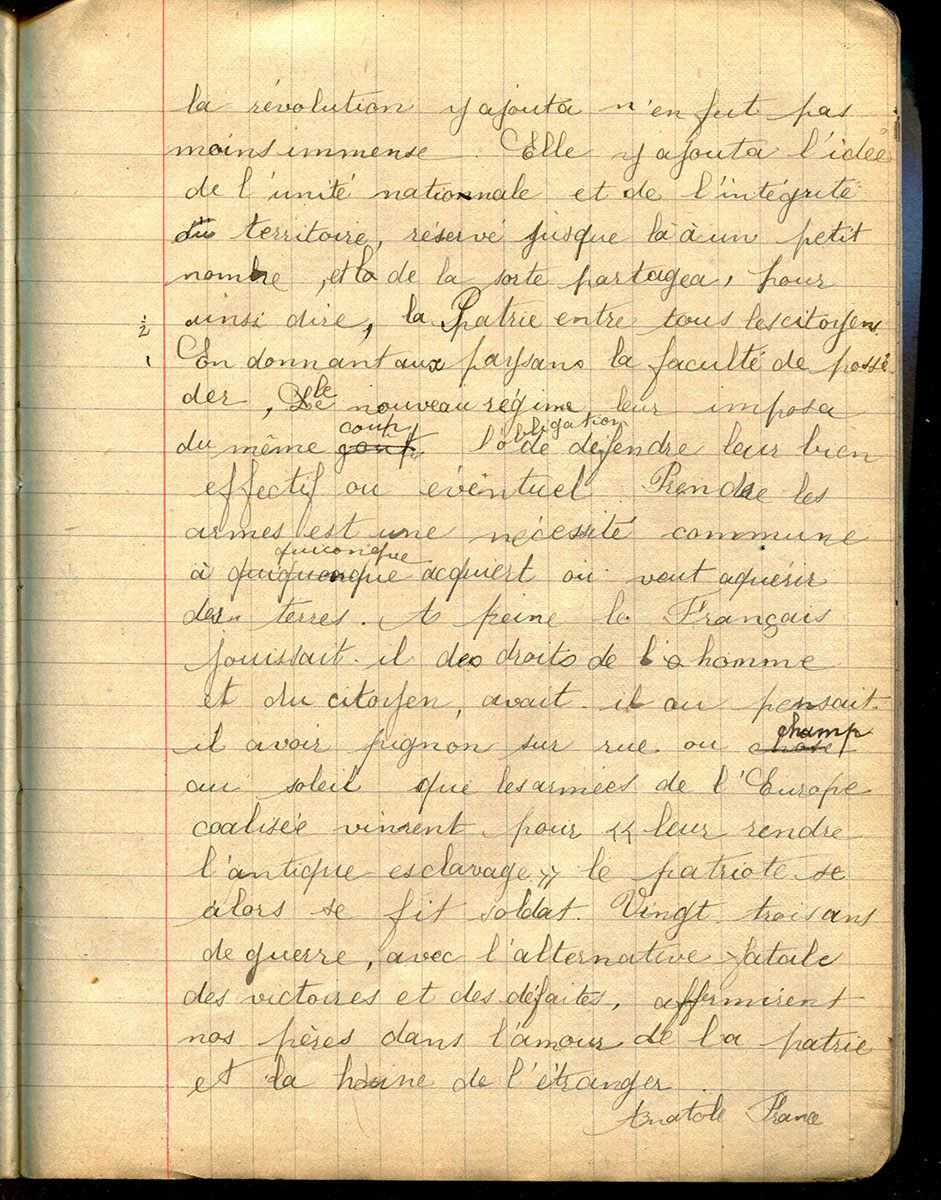 la révolution y ajouta n'en fut pas
moins immense. Elle y ajouta l'idée
de l'unité nationnale et de l'intégrité
du territoire, réservé jusque là à un petit
nombre, et la de la sorte partagea, pour
½ ainsi dire, la Patrie entre tous les citoyens
1 En donnant aux paysans la faculté de possé-
der, le nouveau régime leur imposa
du même coup l'obligation de défendre leur bien
effectif ou éventuel Prendre les
armes est une nécessité commune
quiconque
à quiquonque acquiert où veut aquérir
des terres. A peine le Français
jouissait-il des droits de l'homme
et du citoyen, avait-il ou pensait-
il avoir pignon sur rue ou champ
au soleil que les armées de l'Europe
coalisée vinrent pour « leur rendre
l'antique esclavage » le patriote se
alors se fit soldat. Vingt-trois ans
de guerre, avec l'alternative fatale
des victoires et des défaites, affermirent
nos pères dans l'amour de la patrie
et la haine de l'étranger
Anatole France